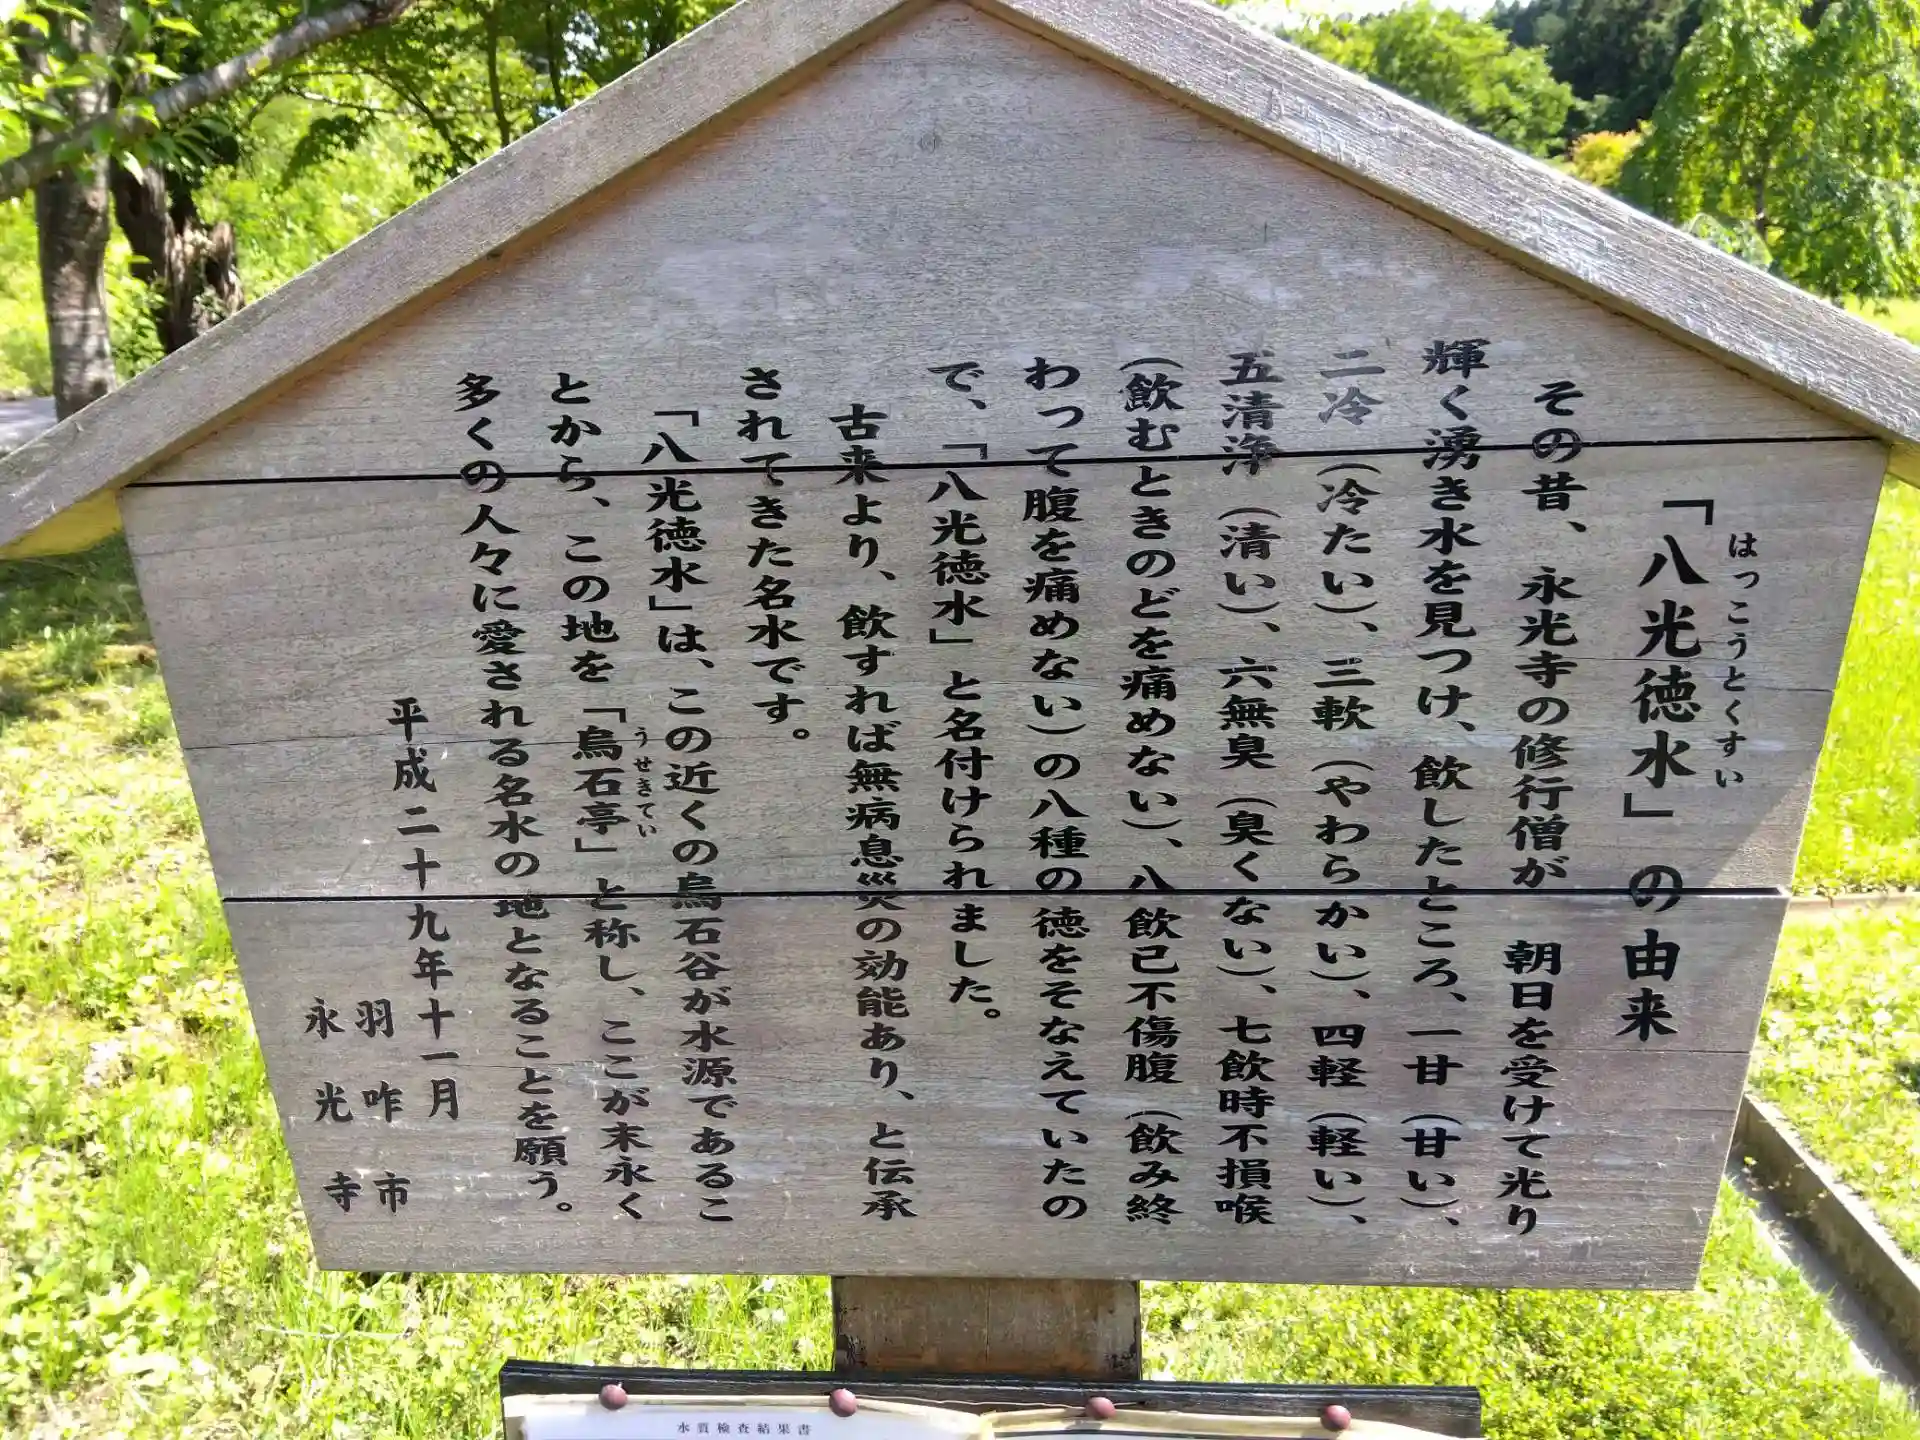 「八光徳水」の由来
はっこうとくすい
その昔、永光寺の修行僧が　朝日を受けて光り
輝く湧き水を見つけ、飲したところ、一甘（甘い）、
二冷（冷たい）、三軟（やわらかい）、四軽（軽い）、
五清浄（清い）、六無臭（臭くない）、七飲時不損喉
（飲むときのどを痛めない）、八飲已不傷腹（飲み終
わって腹を痛めない）の八種の徳をそなえていたの
で、「八光徳水」と名付けられました。
古来より、飲すれば無病息災の効能あり、と伝承
されてきた名水です。
「八光徳水」は、この近くの烏石谷が水源であるこ
とから、この地を「烏石亭」と称し、ここが末永く
うせきてい
多くの人々に愛される名水の地となることを願う。
平成二十九年十一月
羽咋市
永光寺
水質検査結果書